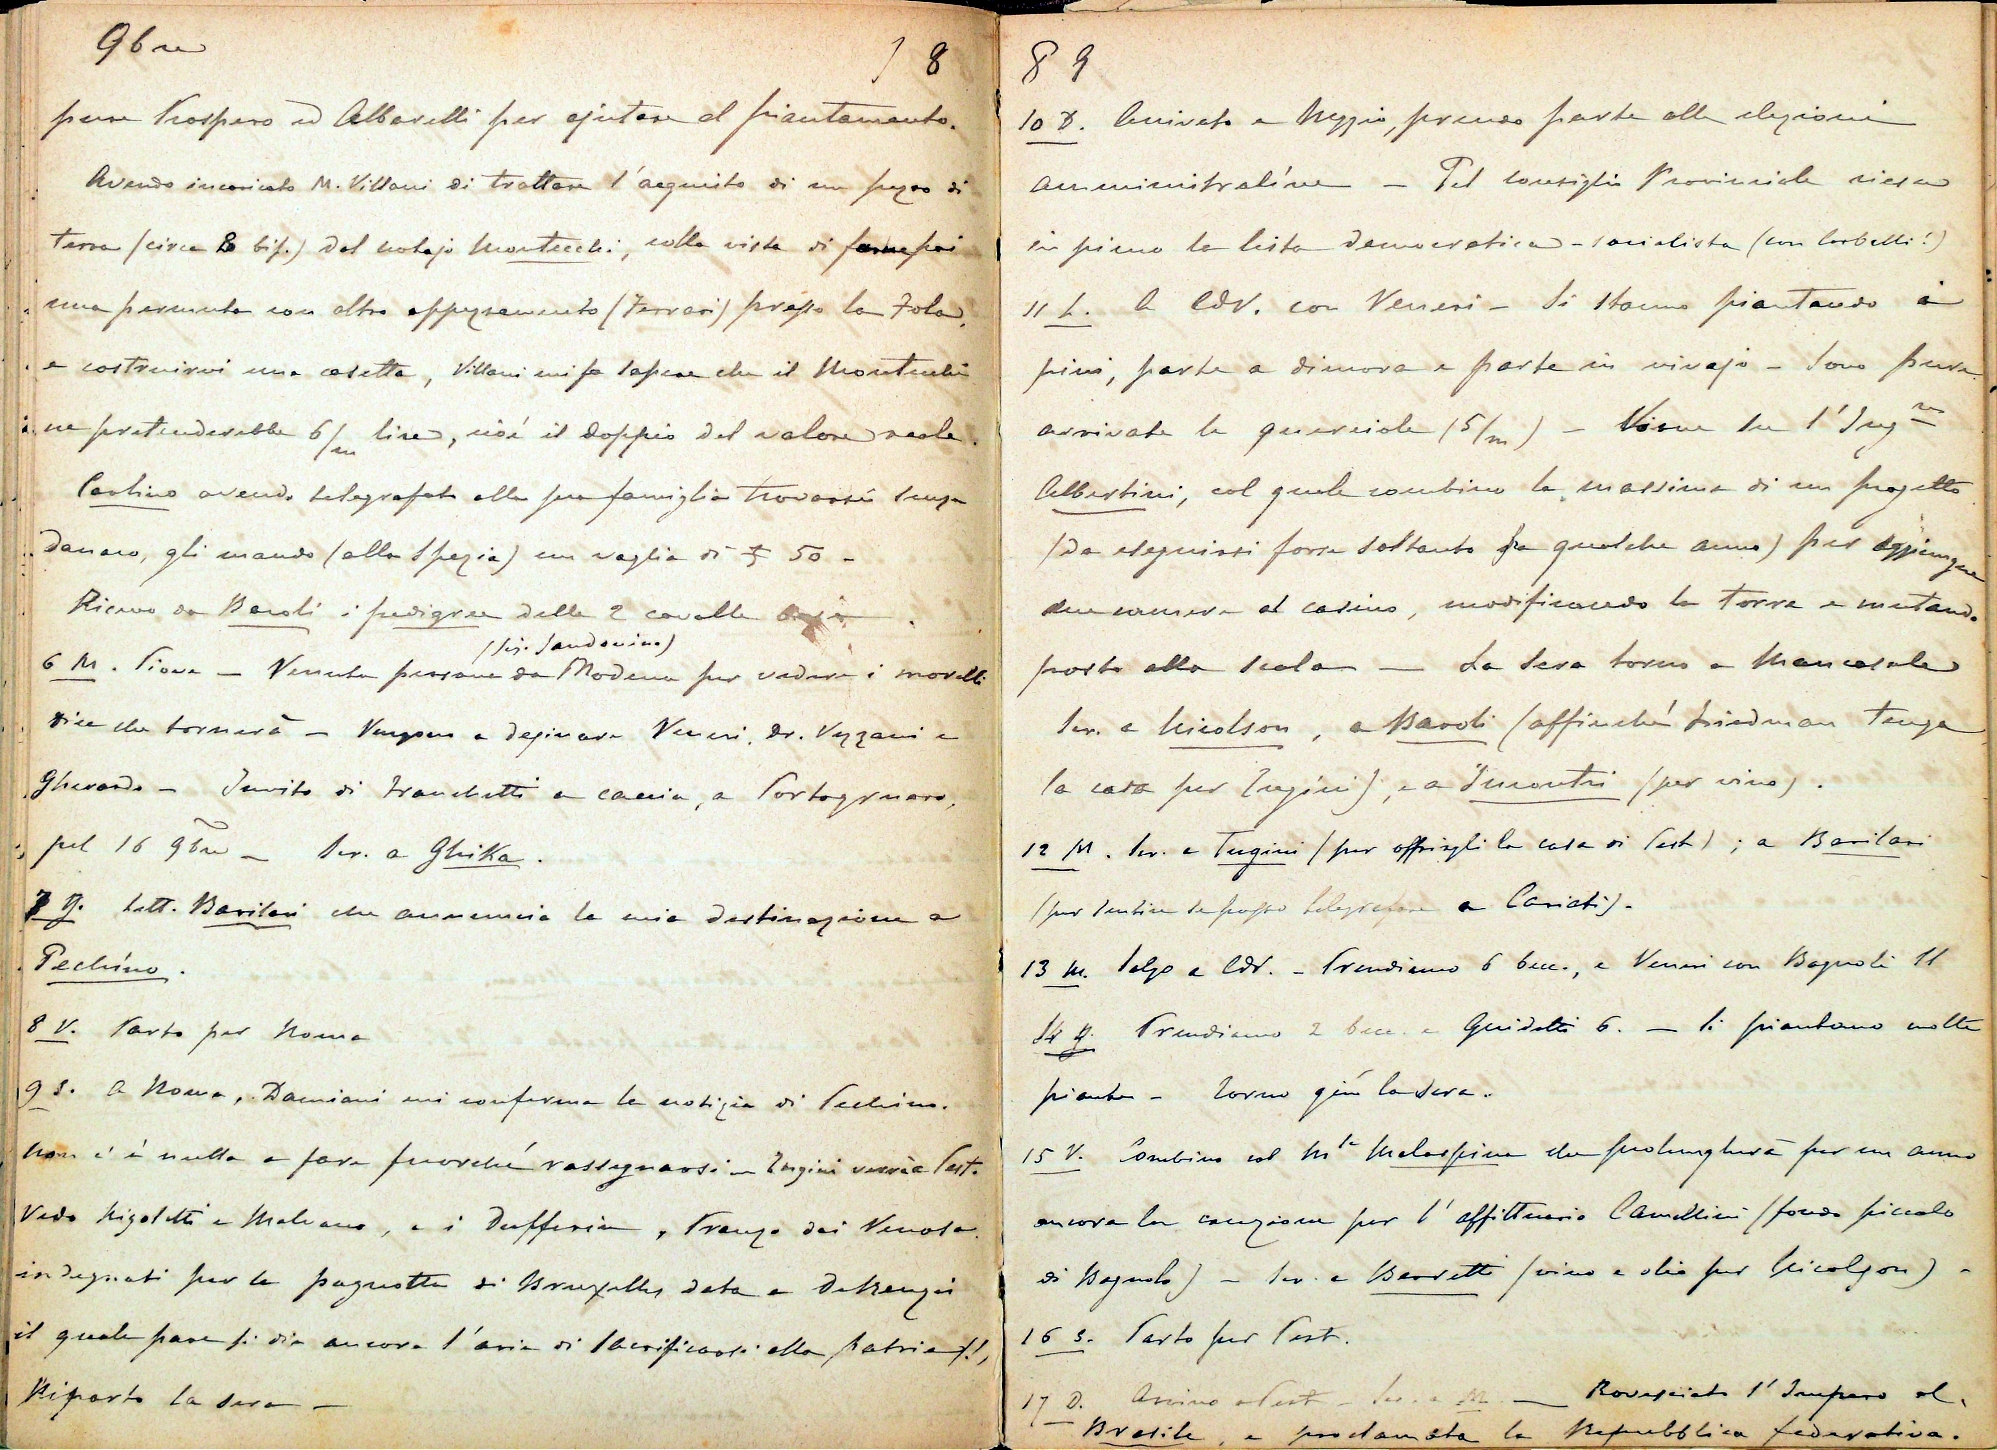 9bre
18
pure Prospero ed Albarelli per ajutare al piantamento.
Avendo incaricato M. Villani di trattare l'acquisto di un pezzo di
terra (circa 8 bif.) del notajo Montecchi, colla vista di farne poi
una permuta con altro appezzamento (Ferrari) presso la Zola,
e costruirvi una casetta, Villani mi fa sapere che il Montecchi
ne pretenderebbe 6/m lire, cioè il doppio del valore reale.
Paolino avendo telegrafato alla sua famiglia trovarsi senza
danaro, gli mando (alla Spezia) un vaglia di £ 50 -
Ricevo da Baroli i pedigree delle 2 cavalle
(Sig. Sandonino)
6 M. Piove - Venuta persona da Modena per vedere i morelli
dice che tornerà - Vengono a desinare Veneri, dr. Vezzani e
Gherardo - Invito di Franchetti a caccia, a Portogruaro,
pel 16 9bre - Scr. a Ghika.
7 G. Lett. Barilari che annuncia la mia destinazione a
Pechino.
8 V. Parto per Roma
9 S. A Roma, Damiani mi conferma la notizia di Pechino.
Non c'è nulla a fare fuorché rassegnarsi - Tugini verrà a Pest.
Vedo Rigoletti e Malvano, e i Dufferin, Pranzo dai Venosa
indegnati per la pagnotta di Bruxelles data a De Renzis
il quale pare si dia ancora l'aria di sacrificarsi alla patria!!,
Riparto la sera -
89
10 D. Arrivato a Reggio, prendo parte alle elezioni
amministrative - Pel Consiglio Provinciale riesce
in pieno la lista democratica-socialista (con Corbelli!)
11 L. A CdV. con Veneri - Si stanno piantando i
pini, parte a dimora e parte in vivajo - Sono pure
arrivate le querciole (5/m) - Viene su l'Ingre
Albertini, col quale combino la massima di un progetto
(da eseguirsi forse soltanto fra qualche anno) per aggiungere
due camere al casino, modificando la torre e mutando
posto alla scala - La sera torno a Mancasale
Scr. a Nicolson, a Baroli (affinché Friedman tenga
la casa per Tugini), e a Incontri (per vino).
12 M. Scr. a Tugini (per offrirgli la casa di Pest); a Barilari
(per sentire se posso telegrafare a Cariati).
13 M. Salgo a CdV. - Prendiamo 6 becc., e Veneri con Bagnoli 11
14 G. Prendiamo 2 becc. e Guidetti 6. - Si piantano molte
piante - Torno giù la sera.
15 V. Combino col Mse Malaspina che prolungherà per un anno
ancora la cauzione per l'affittuario Camellini (fondo piccolo
di Bagnolo) - Scr. a Beretti (vino e olio per Nicolson) -
16 S. Parto per Pest.
17 D. Arrivo a Pest - Scr. a M. - Rovesciato l'Impero al
Brasile, e proclamata la Repubblica federativa.